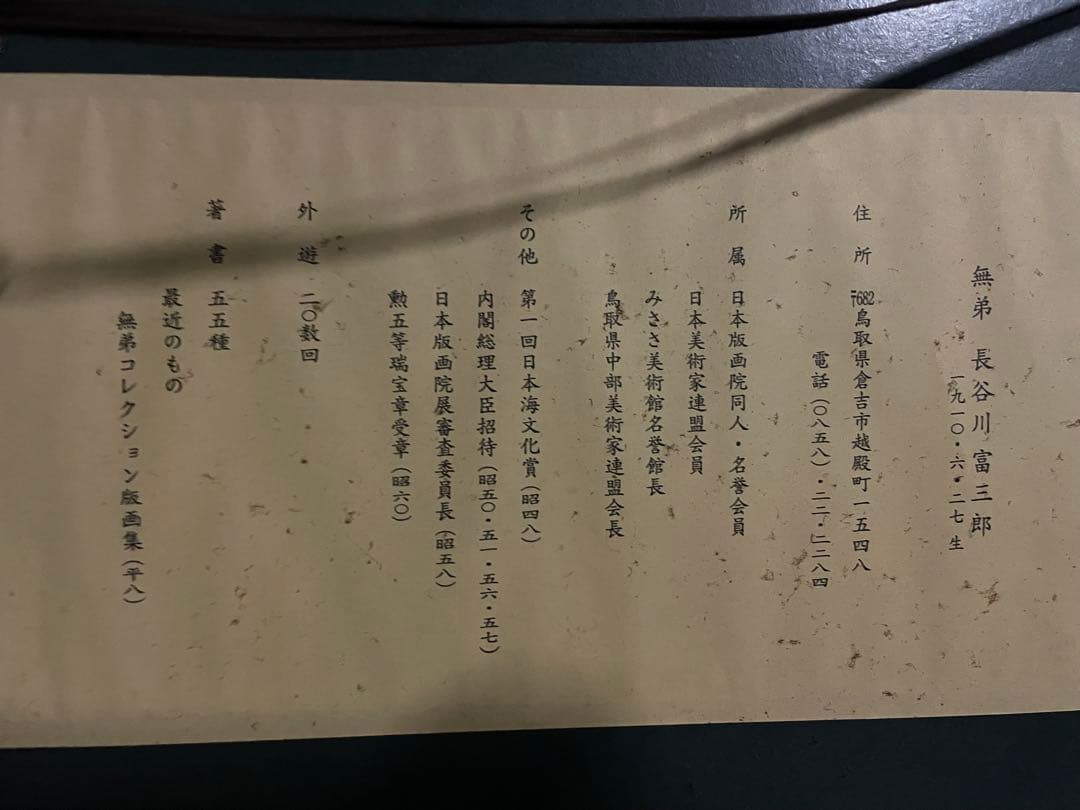 無弟 長谷川富三郎
一九一〇・六・二七生
住所 〒682鳥取県倉吉市越殿町一五四八
電話(〇八五八)・二二・二二八四
所属 日本版画院同人・名誉会員
日本美術家連盟会員
みささ美術館名誉館長
鳥取県中部美術家連盟会長
その他 第一回日本海文化賞(昭四八)
内閣総理大臣招待(昭五〇・五一・五六・五七)
日本版画院展審査委員長(昭五八)
勲五等瑞宝章受章(昭六〇)
外遊 二〇数回
著書 五五種
最近のもの
無弟コレクション版画集(平八)